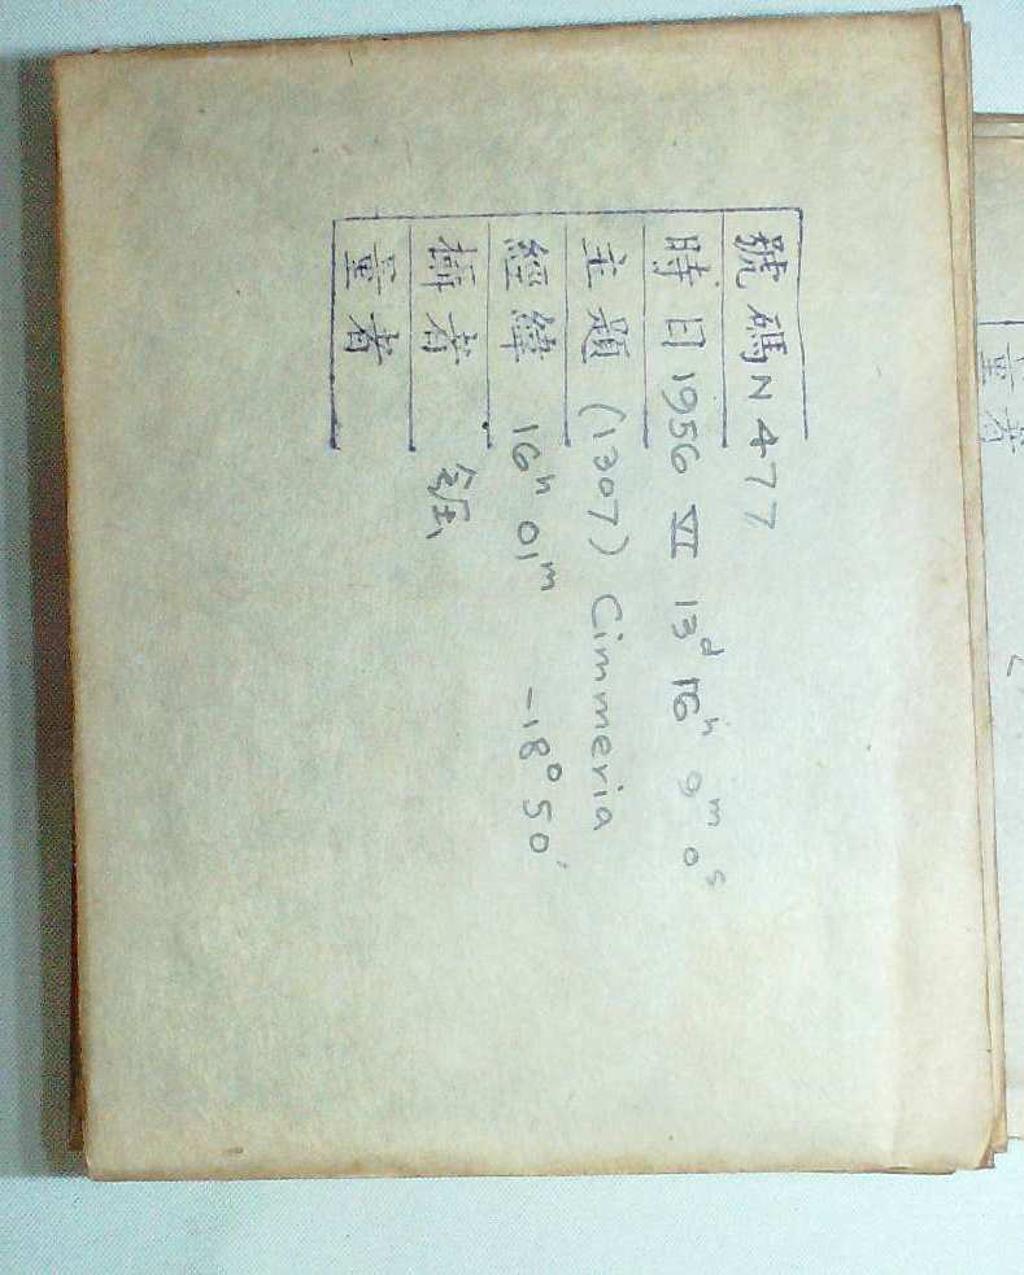 號碼 N 477
時日 1956 VI 13d 16h 9m 0s
主題 (1307) Cimmeria
經緯 16h 01m -18° 50'
攝者
量者
量者